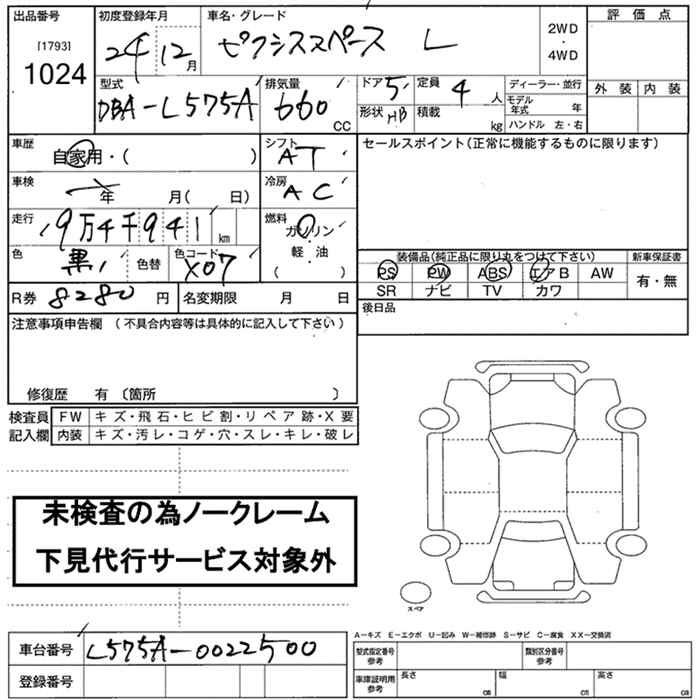 出品番号
[1793]
1024
初度登録年月
24 12 月
車名・グレード
ピクシススペース L
2WD
・
4WD
評価点
外装 内装
型式
DBA-L575A
排気量
660 CC
ドア 5
形状 HB
定員 4 人
積載 kg
ディーラー・並行
モデル年式 年
ハンドル 左・右
車歴
自家用・( )
シフト
AT
車検
年 月( 日)
冷房
AC
走行
9万4千941 km
燃料
ガソリン・
軽・油
( )
色
黒 色替
色コード
X07
R券 8280 円 名変期限 月 日
セールスポイント(正常に機能するものに限ります)
装備品(純正品に限り丸をつけて下さい)
新車保証書
PS PW ABS エアB AW
有・無
SR ナビ TV カワ
後日品
注意事項申告欄 (不具合内容等は具体的に記入して下さい)
修復歴 有 〔箇所 〕
検査員
記入欄
FW キズ・飛石・ヒビ割・リペア跡・X要
内装 キズ・汚レ・コゲ・穴・スレ・キレ・破レ
未検査の為ノークレーム
下見代行サービス対象外
スペア
車台番号 L575A-0022500
登録番号
A-キズ E-エクボ U-凹み W-補修跡 S-サビ C-腐食 XX-交換済
型式指定番号
参考
類別区分番号
参考
車庫証明用
参考
長さ cm 幅 cm 高さ cm